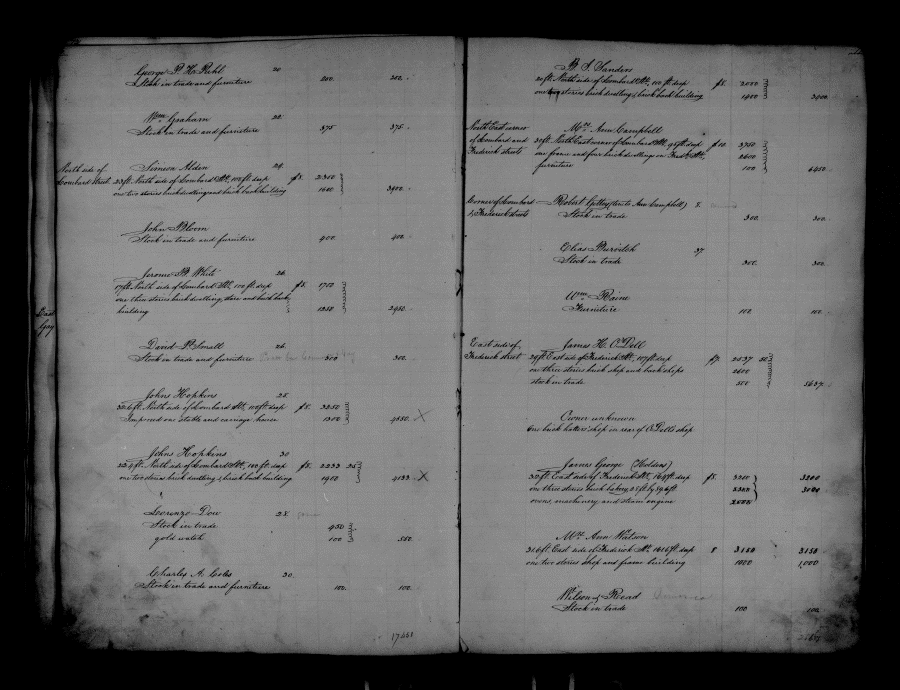 George P. H. Ruhl 20
Stock in trade and furniture 250. 250.
Wm Graham 22.
Stock in trade and furniture 375 375.
North side of
Lombard Street
Simeon Alden 24.
23 ft. North side of Lombard St., 100 ft. deep f8. 2300
one two stories brick dwelling and brick back building 1600 3900.
John Bloom
Stock in trade and furniture 400. 400.
Jerome B. White 26.
17 ft. North side of Lombard St., 100 ft. deep f8. 1700
one three stories brick dwelling, store and brick back
building 3450.
David B. Small 26.
Stock in trade and furniture 300 300.
East
Gay
Johns Hopkins 25.
North side of Lombard St., 100 ft. deep f8. 3250
Improved one stable and carriage house 1300 4550. X
Johns Hopkins 30
North side of Lombard St., 100 ft. deep f8. 2233
one two stories brick dwelling & brick back building 1900 4133. X
Lorenzo Dow 28.
Stock in trade 450
gold watch 100 550.
Charles A. Coles 30.
Stock in trade and furniture 100. 100.
17451
B. S. Sanders
20 ft. North side of Lombard St., 100 ft. deep f8. 2000
one two stories brick dwelling & brick back building 1400 3400
North East corner
of Lombard and
Frederick streets
Mrs. Ann Campbell
North East corner of Lombard St., 94 ft. deep f10. 3750
one frame and four brick dwellings on Fredk St., 2600
furniture 100 6450.
Corner of Lombard
& Frederick streets
Robert Getty (Ann Campbell) 8.
Stock in trade 300. 300.
Elias 37.
Stock in trade 300. 300.
Wm Raine
Furniture 100 100.
East side of
Frederick street
James H. O'Dell
29 ft. East side of Frederick St., 107 ft. deep f7. 2537 50
one three stories brick shop and back shops 2600
stock in trade 500 5637.
Owner unknown
One brick hatters' shop in rear of O'Dell's shop
James George (Holdens)
32 ft. East side of Frederick St., 164 ft. deep f8. 3200 3200
one three stories brick bakery, 25 ft by 396 ft. 3000
ovens, machinery and steam engine
Mrs. Ann Watson
East side of Frederick St. deep 8 3150 3150
one two stories shop and frame building 1000 1,000
Wilson & Read
Stock in trade 100 100.